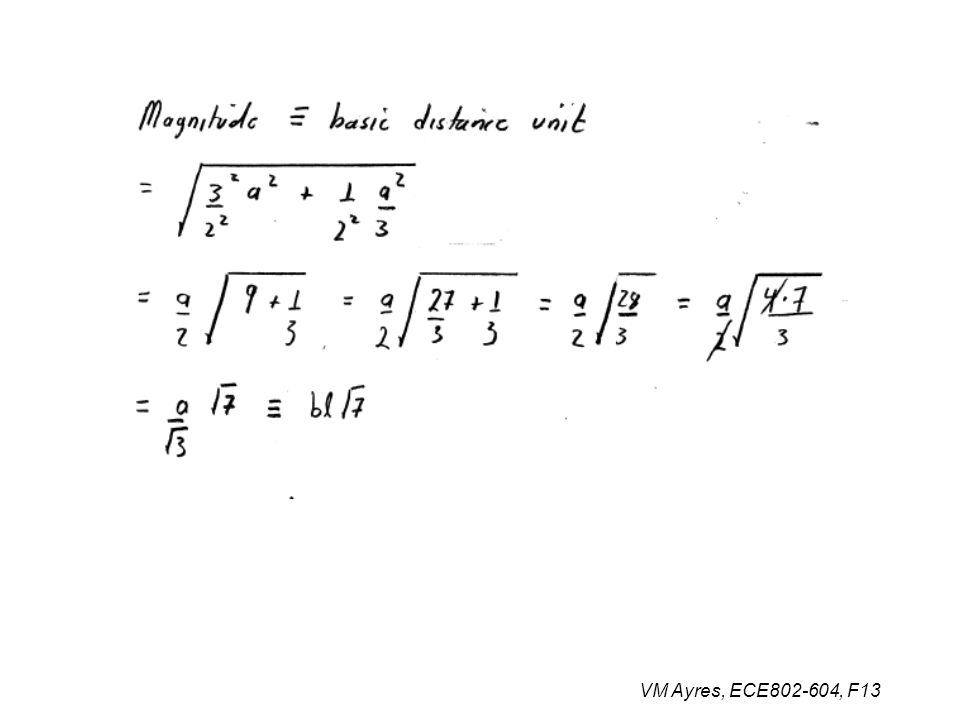 Magnitude ≡ basic distance unit
= √(3²/2² a² + 1/2² a²/3)
= a/2 √(9 + 1/3) = a/2 √(27/3 + 1/3) = a/2 √(28/3) = a/2 √(4·7/3)
= a/√3 √7 ≡ bl√7
VM Ayres, ECE802-604, F13